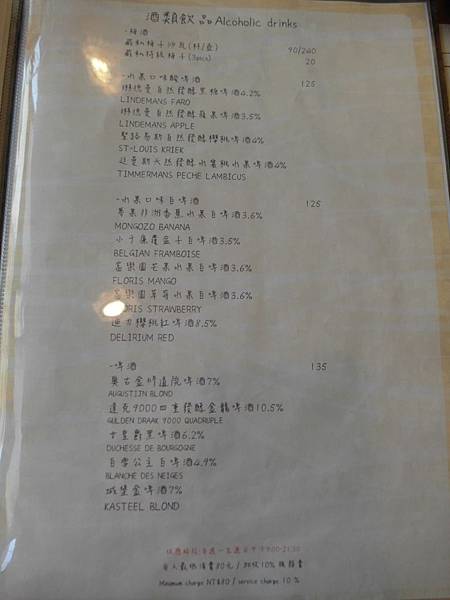 酒類飲品Alcoholic drinks
-梅酒
90/240
20
-水果口味酸啤酒 125
林德曼自然發酵黑糖啤酒4.2%
LINDEMANS FARO
林德曼自然發酵蘋果啤酒3.5%
LINDEMANS APPLE
聖路易斯自然發酵櫻桃啤酒4%
ST-LOUIS KRIEK
提曼斯天然發酵水蜜桃水果啤酒4%
TIMMERMANS PECHE LAMBICUS
-水果口味白啤酒 125
夢果非洲香蕉水果白啤酒3.6%
MONGOZO BANANA
小于廉覆盆子白啤酒3.5%
BELGIAN FRAMBOISE
芒果水果白啤酒3.6%
FLORIS MANGO
草莓水果白啤酒3.6%
FLORIS STRAWBERRY
迪力櫻桃紅啤酒8.5%
DELIRIUM RED
-啤酒 135
奧古金修道院啤酒7%
AUGUSTIJN BLOND
達克9000四重發酵金龍啤酒10.5%
GULDEN DRAAK 9000 QUADRUPLE
女皇爵黑啤酒6.2%
DUCHESSE DE BOURGOGNE
白雪公主白啤酒4.9%
BLANCHE DES NEIGES
城堡金啤酒7%
KASTEEL BLOND
供應時段:每週一至週日中午9:00-21:30
每人最低消費80元/加收10%服務費
Minimum charge NT$80 / service charge 10 %